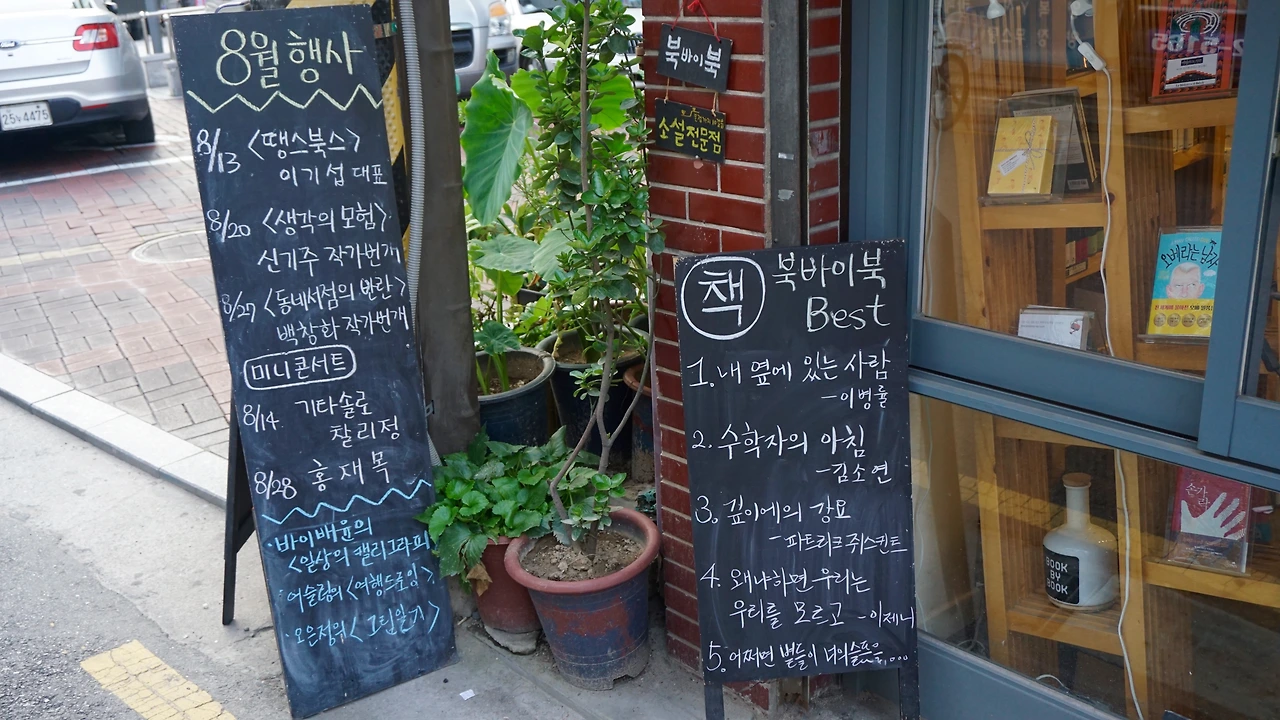 8월 행사
8/13 <땡스북스>
이기섭 대표
8/20 <생각의 모험>
신기주 작가번개
8/27 <동네서점의 반란>
백창화 작가번개
미니콘서트
8/14 기타솔로
찰리정
8/28 홍재목
·바이배윤의
<일상의 캘리그라피>
·어슬렁의 <여행드로잉>
·오은정의 <그림일기>
25누4475
북바이북
소설전문점
책 북바이북
Best
1. 내 옆에 있는 사람
-이병률
2. 수학자의 아침
-김소연
3. 깊이에의 강요
-파트리크 쥐스킨트
4. 왜냐하면 우리는
우리를 모르고 -이제니
5. 어쩌면 별들이 너의 슬픔을....
오베라는 남자
BOOK
BY
BOOK